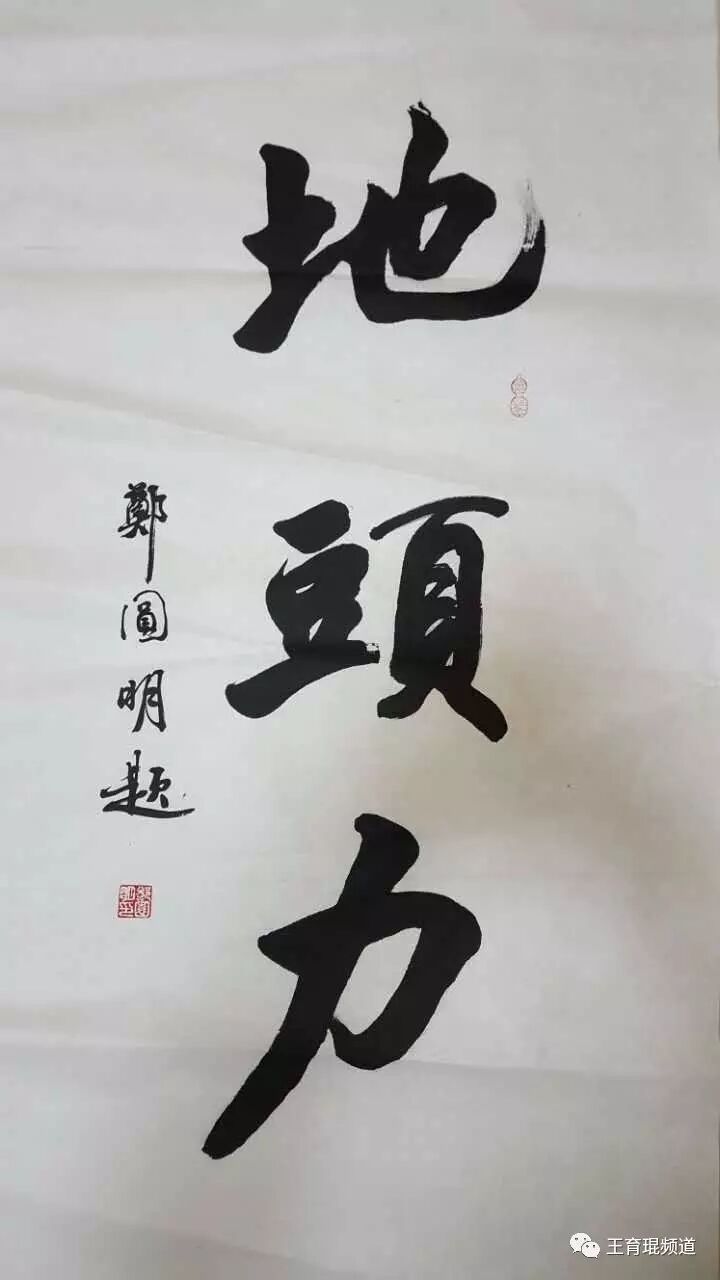 地頭力
鄭圓明题
王育琨频道